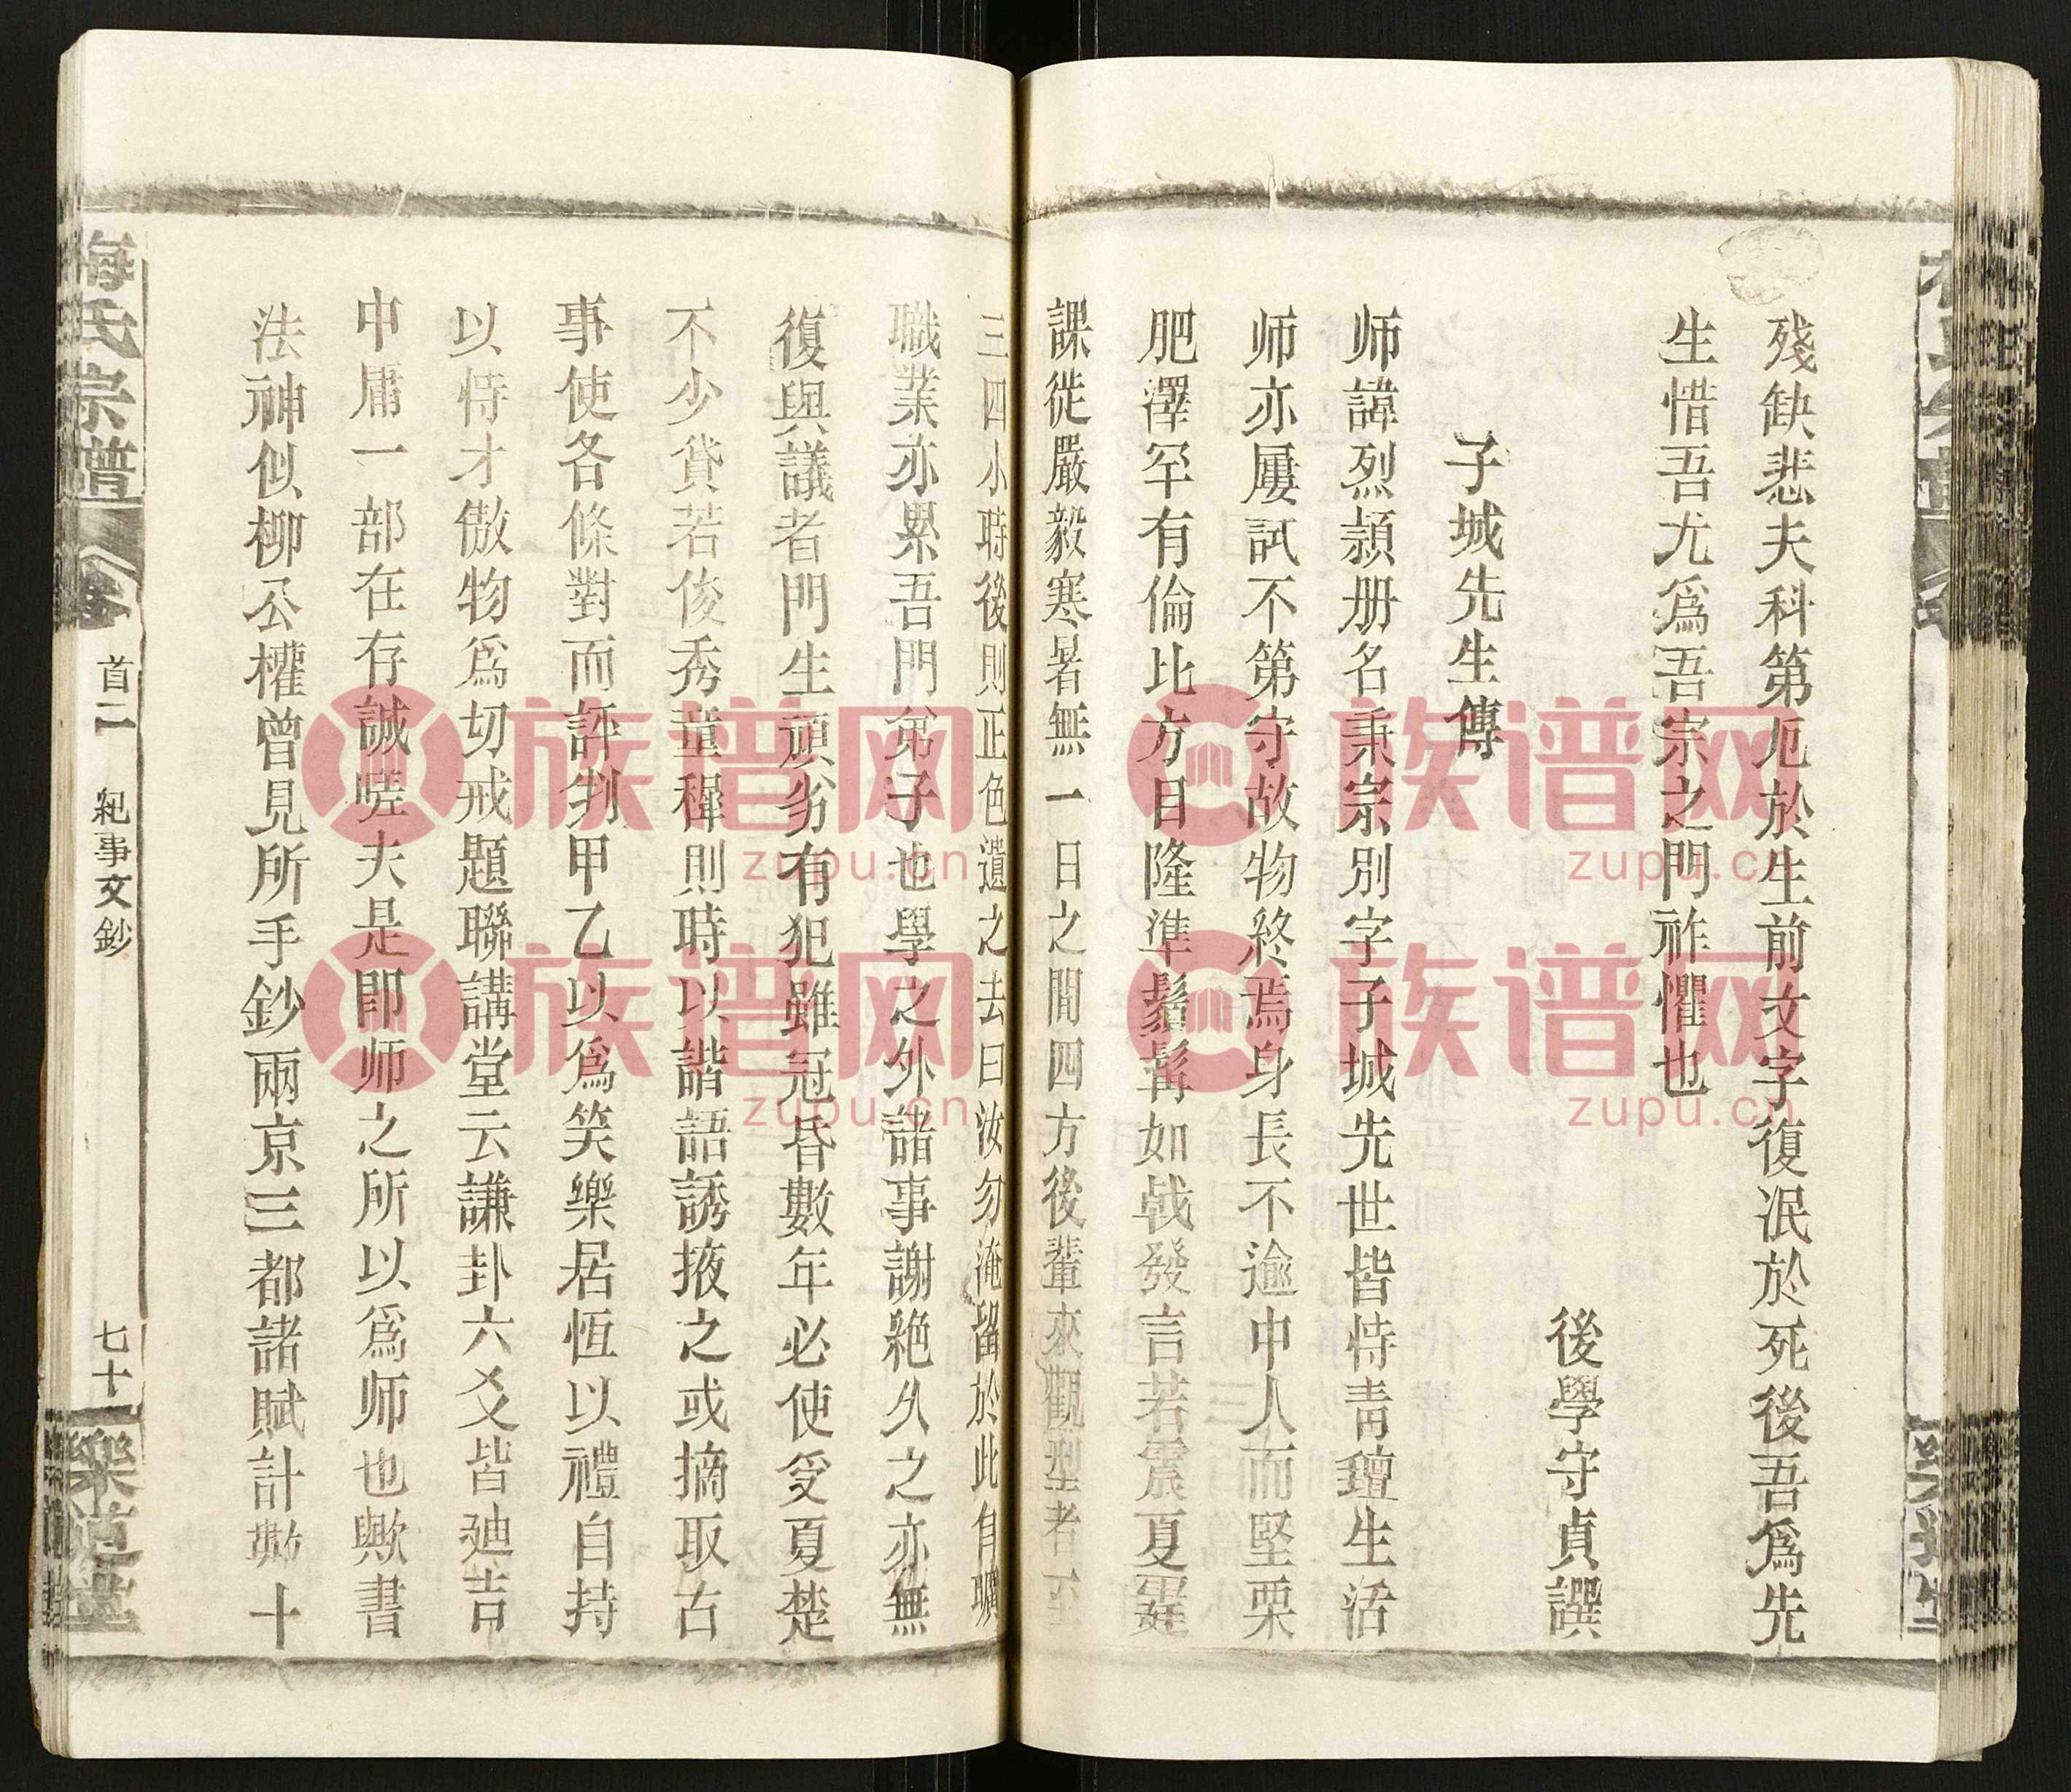 殘缺悲夫科第厄於生前文字復泯於死後吾爲先
生惜吾尤爲吾宗之門祚懼也
後學守貞譔
子城先生傳
师諱烈潁册名秉宗別字子城先世皆恃青氊生活
师亦屢試不第守故物終焉身長不逾中人而堅栗
肥澤罕有倫比方目隆準鬚髯如戟發言若震夏霆
課徒嚴毅寒暑無一日之間四方後輩來觀型者一至
三四小時後則正色遣之去曰汝勿淹留於此有曠
職業亦累吾門弟子也學之外諸事謝絶久之亦無
復與議者門生頑劣有犯雖冠昏數年必使受夏楚
不少貸若俊秀童穉則時以諧語誘掖之或摘取古
事使各條對而評判甲乙以爲笑樂居恆以禮自持
以恃才傲物爲切戒題聯講堂云謙卦六爻皆廸吉
中庸一部在存誠嗟夫是即师之所以爲师也歟書
法神似柳公權曾見所手鈔兩京三都諸賦計數十
梅氏宗譜
卷
首二
紀事文鈔
七十
樂道堂
族谱网
zupu.cn
族谱网
zupu.cn
族谱网
zupu.cn
族谱网
zupu.cn